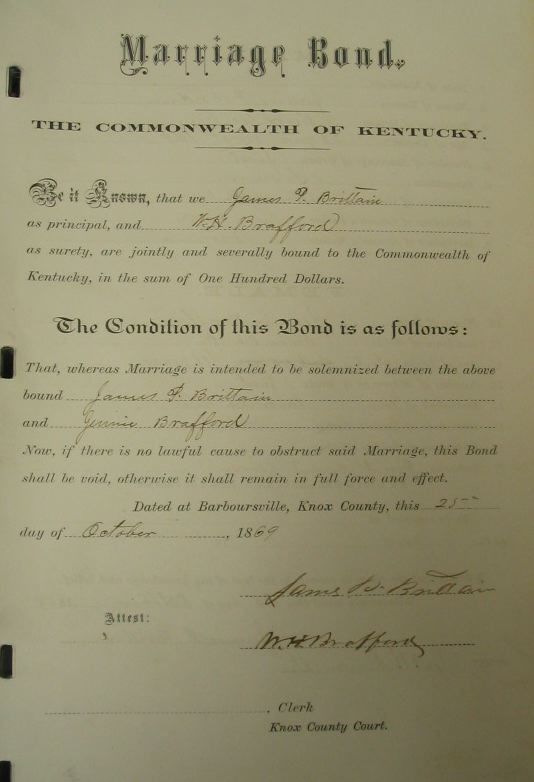 Marriage Bond.
THE COMMONWEALTH OF KENTUCKY.
Be it Known, that we James P. Brittain
as principal, and W. H. Brafford
as surety, are jointly and severally bound to the Commonwealth of
Kentucky, in the sum of One Hundred Dollars.
The Condition of this Bond is as follows:
That, whereas Marriage is intended to be solemnized between the above
bound James P. Brittain
and Jennie Brafford
Now, if there is no lawful cause to obstruct said Marriage, this Bond
shall be void, otherwise it shall remain in full force and effect.
Dated at Barboursville, Knox County, this 25
day of October, 1869
James Brittain
Attest:
W. H. Brafford
, Clerk
Knox County Court.